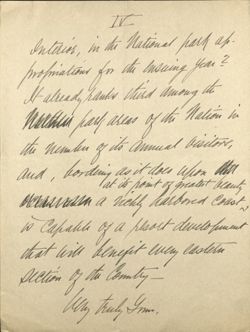 IV
Interior, in the National park ap-
propriations for the ensuing year?
It already ranks third among the
park areas of the Nation in
the number of its annual visitors,
and, bording as it does upon
at its point of greatest beauty
a richly harbored coast,
is capable of a resort development
that will benefit every eastern
section of the Country—
Very truly Yours,